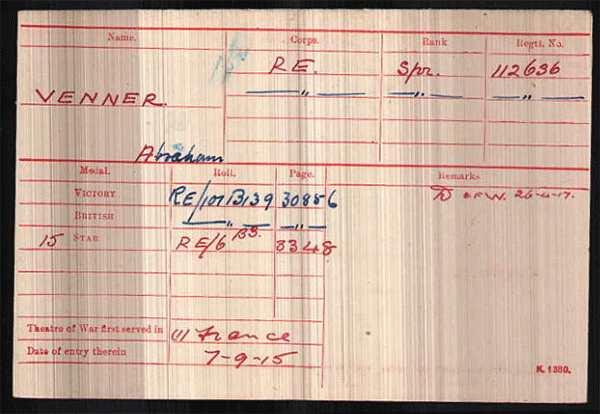 Name. Corps. Rank Regtl. No.
R.E. Spr. 112636
VENNER. —"— —"— —"—
Abraham
Medal. Roll. Page. Remarks
VICTORY RE/101 B139 30856 D of W. 26-4-17.
BRITISH —"— —"—
15 STAR RE/6 B3. 3348
Theatre of War first served in (1) France
Date of entry therein 7-9-15
K. 1380.